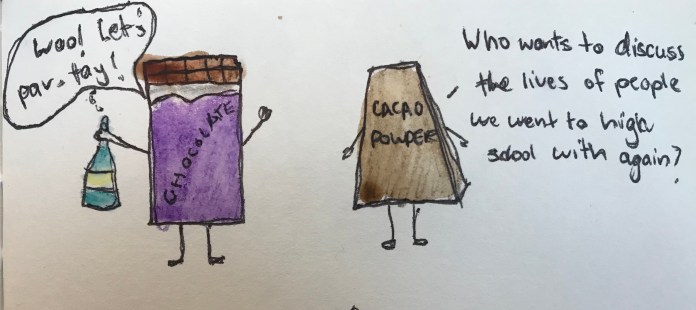 Woo! Let's
par-tay!
CHOCOLATE
CACAO
POWDER
Who wants to discuss
the lives of people
we went to high
school with again?